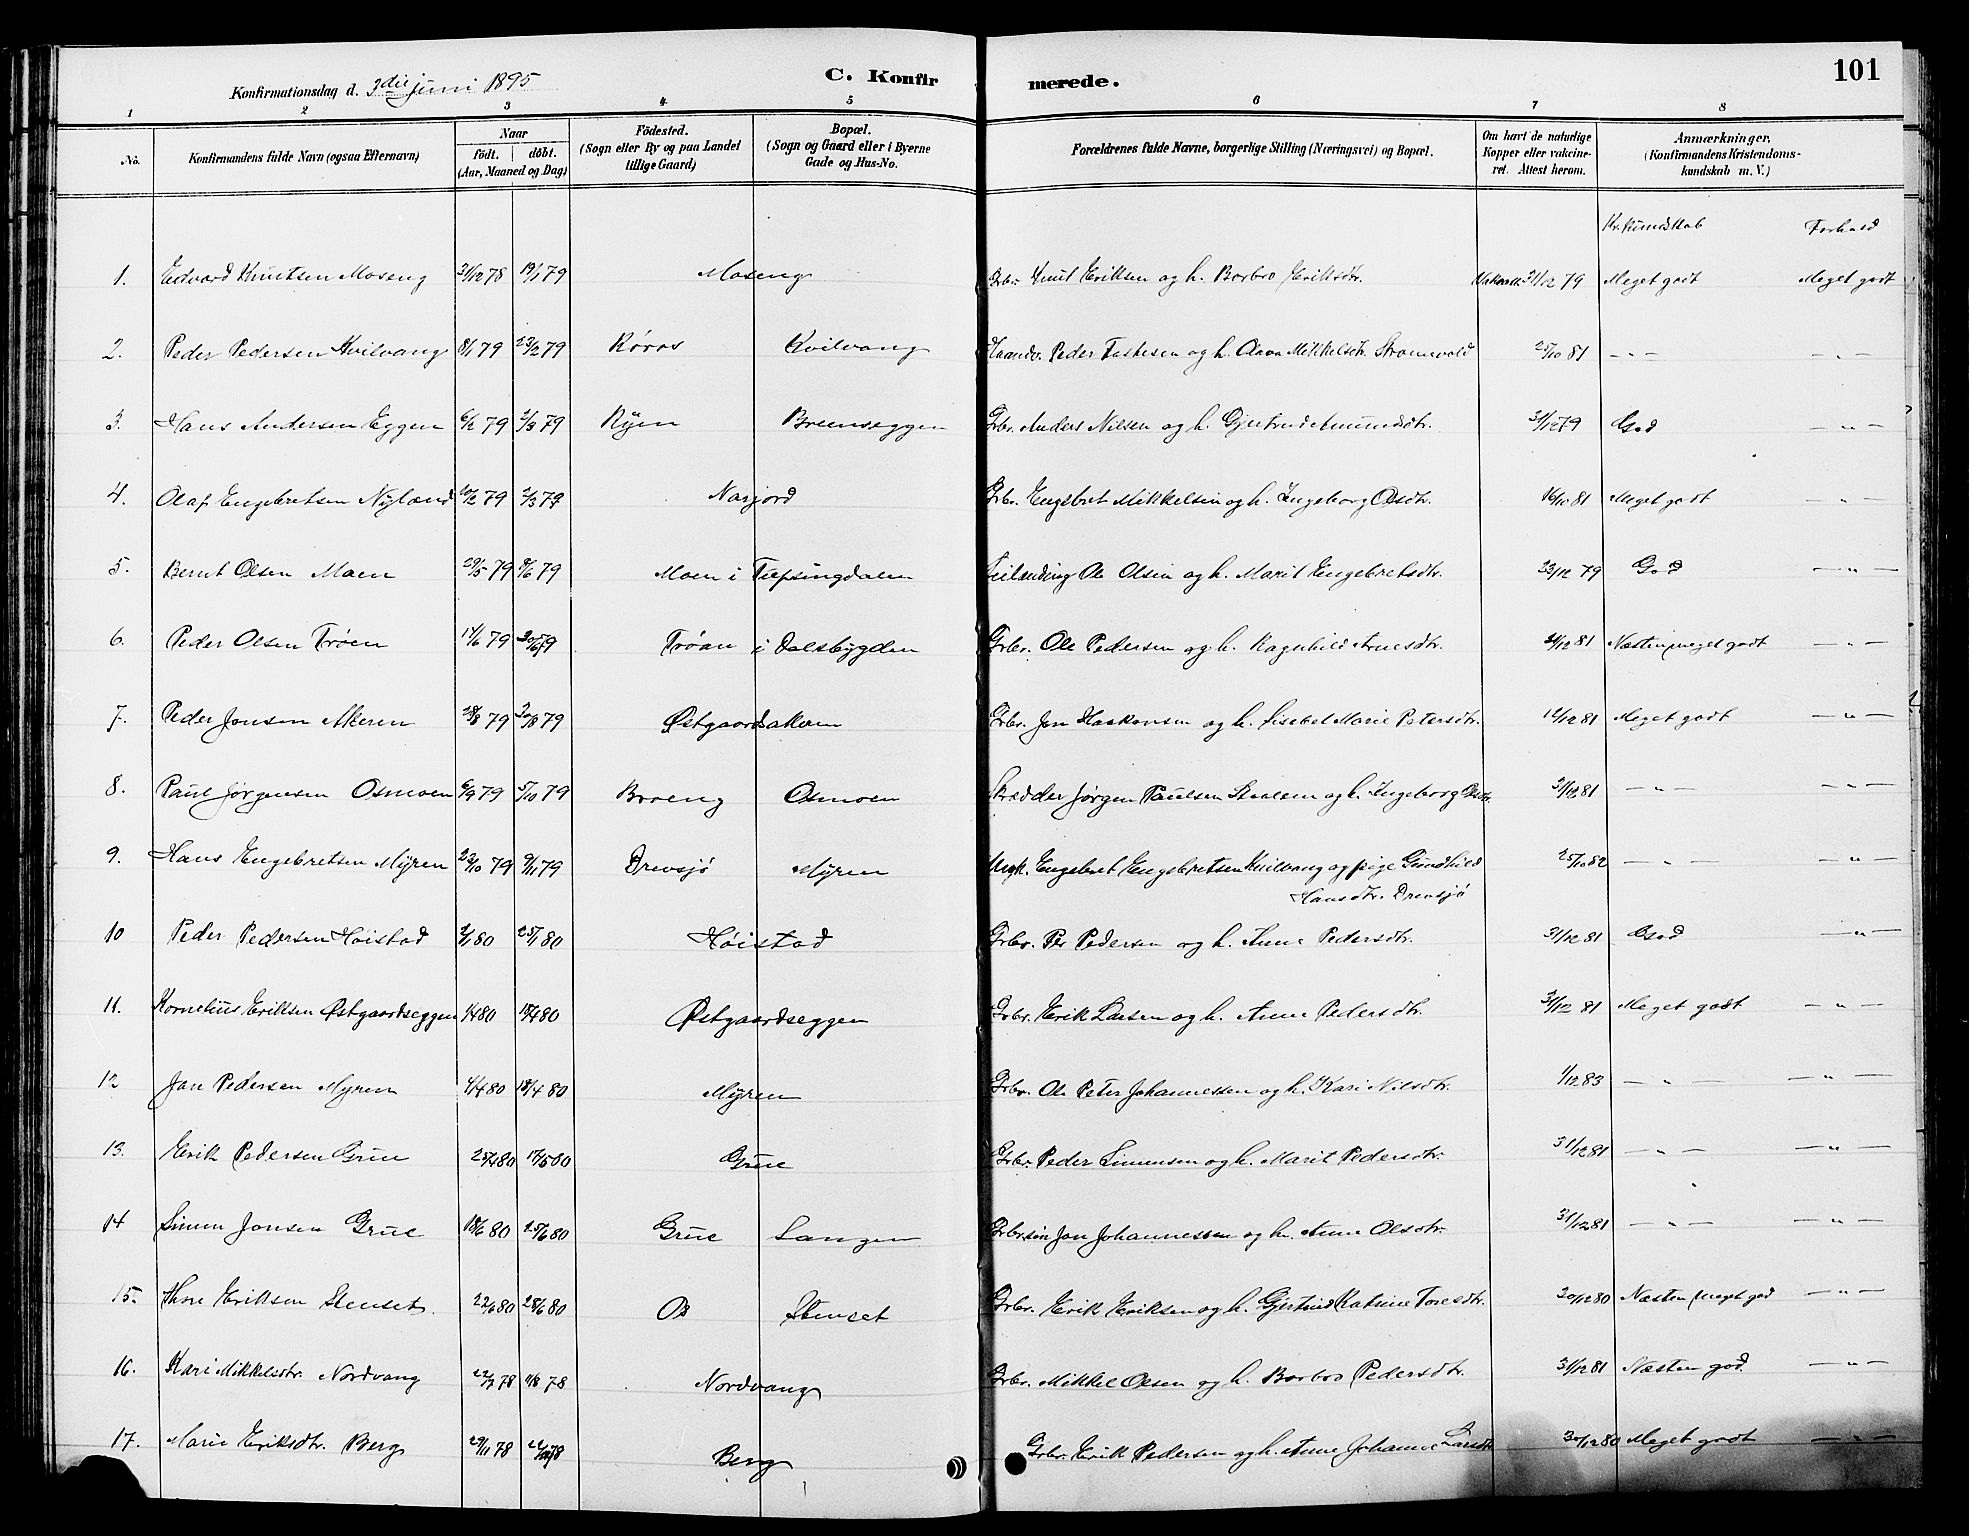 101
Konfirmationsdag d. 3die juni 1895 C. Konfirmerede.
1 2 3 4 5 6 7 8
No. Konfirmandens fulde Navn (ogsaa Efternavn) Naar født. døbt. (Aar, Maaned og Dag) Fødested. (Sogn eller By og paa Landet tillige Gaard) Bopæl. (Sogn og Gaard eller i Byerne Gade og Hus-No. Forældrenes fulde Navne, borgerlige Stilling (Næringsvei) og Bopæl. Om havt de naturlige Kopper eller vakcineret. Attest herom. Anmærkninger. (Konfirmandens Kristendomskundskab m. V.)
Kr. kundskab Forhold
1. Edvard Knutsen Moseng 31/12 78 19/1 79 Moseng Grbr. Knut Eriksen og h. Barbro Eriksdtr. 31/12 79 Meget godt Meget godt
2. Peder Pedersen Kvilvang 8/1 79 23/2 79 Røros Kvilvang Peder og h. Mikkelsdtr. 25/10 81 — „ — — „ —
3. Hans Andersen Eggen 6/2 79 2/3 79 Ryen Breenseggen Grbr. Anders Nilsen og h. Gjertrud Amundsdtr. 31/12 79 God — „ —
4. Olaf Engebretsen Nyland 20/2 79 2/3 79 Narjord Grbr. Engebret Mikkelsen og h. Ingeborg Olsdtr. 16/10 81 Meget godt — „ —
5. Bernt Olsen Moen 29/5 79 8/6 79 Moen i Tufsingdalen Leilending Ole Olsen og h. Marit Engebretsdtr. 23/12 79 God — „ —
6. Peder Olsen Trøen 14/6 79 Trøan i Dalsbygden Grbr. Ole Pedersen og h. Ragnhild Arnesdtr. 21/12 81 Næsten meget godt — „ —
7. Peder Jonsen Akeren Østgaardsakeren Grbr. Jon Haakonsen og h. Lisebet Marie Petersdtr. 12/12 81 Meget godt — „ —
8. Paul Jørgensen Osmoen 6/9 79 5/10 79 Breeng Osmoen Skrædder Jørgen Paulsen og h. Ingeborg Olsdtr. 21/12 81 — „ — — „ —
9. Hans Engebretsen Myren 23/10 79 9/11 79 Drevsjø Myren Ungk. Engebret Engebretsen Kvilvang og pige Gundhild 25/10 82 — „ — — „ —
Hansdtr. Drevsjø
10 Peder Pedersen Høistad 2/1 80 25/1 80 Høistad Grbr. Per Pedersen og h. Anne Pedersdtr. 31/12 81 God — „ —
11. Kornelius Eriksen Østgaardseggen 1/4 80 18/4 80 Østgaardseggen Grbr. Erik Larsen og h. Anne Pedersdtr. 31/12 81 Meget godt — „ —
12 Jon Pedersen Myren 4/4 80 18/4 80 Myren Grbr. Ole Peter Johannessen og h. Kari Nilsdtr. 1/12 83 — „ — — „ —
13. Erik Pedersen Grue 25/4 80 17/5 80 Grue Grbr. Peder Simensen og h. Marit Pedersdtr. 31/12 81 — „ — — „ —
14 Simen Jonsen Grue 18/6 80 25/6 80 Grue Langen Grbr.søn Jon Johannessen og h. Anne Olsdtr. 31/12 81 — „ — — „ —
15. Thore Eriksen Stenset 22/6 80 28/6 80 Os Stenset Grbr. Erik Eriksen og h. Gjertrud Katrine Toresdtr. 30/12 80 Næsten meget god — „ —
16. Kari Mikkelsdtr. Nordvang 22/7 78 Nordvang Grbr. Mikkel Olsen og h. Barbro Pedersdtr. 31/12 81 Næsten god — „ —
17. Marie Eriksdtr. Berg 29/11 78 Berg Grbr. Erik Pedersen og h. Anne Johanne Larsdtr 30/12 80 Meget godt — „ —